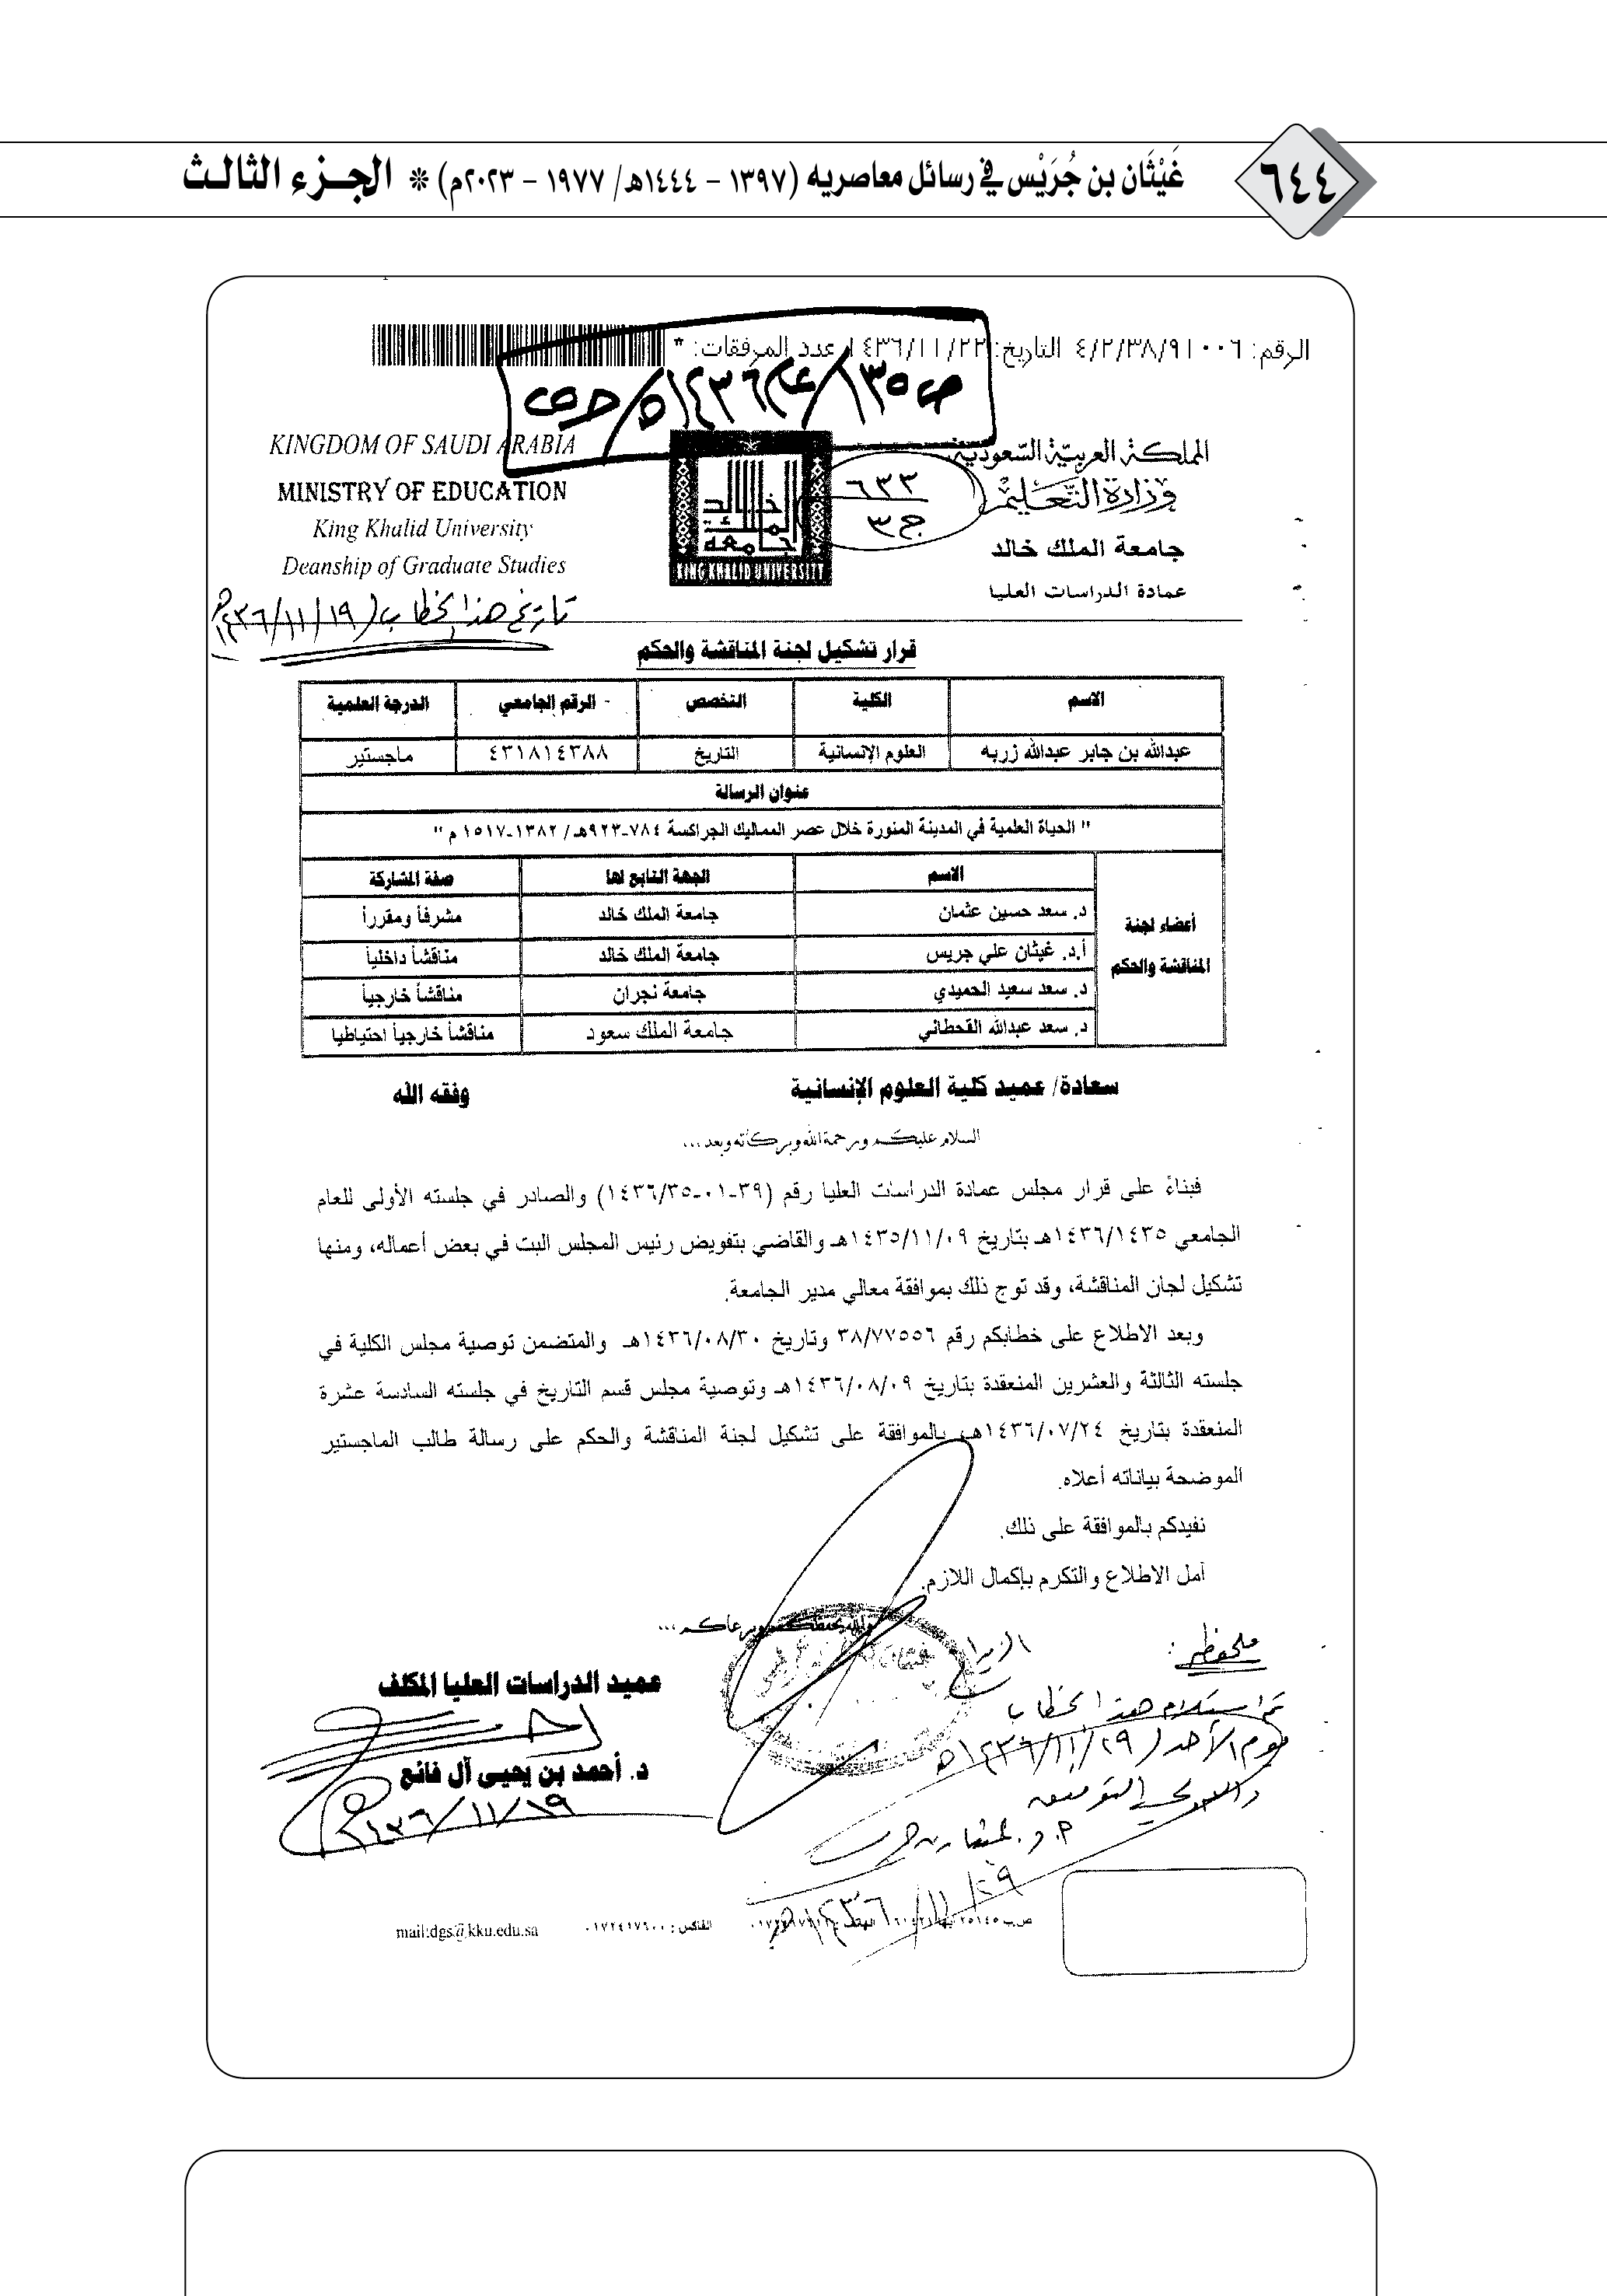 ٦٤٤
غَيْثَان بن جُرَيْس في رسائل معاصريه (١٣٩٧ – ١٤٤٤هـ/ ١٩٧٧ – ٢٠٢٣م) * الجـزء الثالـث
الرقم: ٤/٢/٣٨/٩١٠٠٦ التاريخ: ١٤٣٦/١١/٢٢ عدد المرفقات: *
KINGDOM OF SAUDI ARABIA
MINISTRY OF EDUCATION
King Khalid University
Deanship of Graduate Studies
جامعة الملك خالد
KING KHALID UNIVERSITY
٦٣٣
ج٣
المملكة العربية السعودية
وزارة التعليم
جامعة الملك خالد
عمادة الدراسات العليا
تاريخ هذا الخطاب (١٤٣٦/١١/١٩هـ
قرار تشكيل لجنة المناقشة والحكم
الاسم الكلية التخصص الرقم الجامعي الدرجة العلمية
عبدالله بن جابر عبدالله زربه العلوم الإنسانية التاريخ ٤٣١٨١٤٣٨٨ ماجستير
عنوان الرسالة
" الحياة العلمية في المدينة المنورة خلال عصر المماليك الجراكسة ٧٨٤-٩٢٣هـ/ ١٣٨٢-١٥١٧ م "
أعضاء لجنة المناقشة والحكم
الاسم الجهة التابع لها صفة المشاركة
د. سعد حسين عثمان جامعة الملك خالد مشرفاً ومقرراً
أ.د. غيثان علي جريس جامعة الملك خالد مناقشاً داخلياً
د. سعد سعيد الحميدي جامعة نجران مناقشاً خارجياً
د. سعد عبدالله القحطاني جامعة الملك سعود مناقشاً خارجياً احتياطيا
سعادة/ عميد كلية العلوم الإنسانية وفقه الله
السلام عليكم ورحمة الله وبركاته وبعد ...
فبناءً على قرار مجلس عمادة الدراسات العليا رقم (٣٩-٠١-١٤٣٦/٣٥) والصادر في جلسته الأولى للعام
الجامعي ١٤٣٦/١٤٣٥هـ بتاريخ ١٤٣٥/١١/٠٩هـ والقاضي بتفويض رئيس المجلس البت في بعض أعماله، ومنها
تشكيل لجان المناقشة، وقد توج ذلك بموافقة معالي مدير الجامعة.
وبعد الاطلاع على خطابكم رقم ٣٨/٧٧٥٥٦ وتاريخ ١٤٣٦/٠٨/٣٠هـ والمتضمن توصية مجلس الكلية في
جلسته الثالثة والعشرين المنعقدة بتاريخ ١٤٣٦/٠٨/٠٩هـ وتوصية مجلس قسم التاريخ في جلسته السادسة عشرة
المنعقدة بتاريخ ١٤٣٦/٠٧/٢٤هـ بالموافقة على تشكيل لجنة المناقشة والحكم على رسالة طالب الماجستير
الموضحة بياناته أعلاه.
نفيدكم بالموافقة على ذلك.
آمل الاطلاع والتكرم بإكمال اللازم.
والله يحفظكم ويرعاكم ...
عميد الدراسات العليا المكلف
د. أحمد بن يحيى آل فائع
١٤٣٦/١١/١٩هـ
ملحوظة :
تم استلام هذا الخطاب
يوم الأحد (١٤٣٦/١١/٢٩هـ
والله ولي التوفيق
أ.د. غيثان بن جريس
١٤٣٦/١١/٢٩هـ
الفاكس : ٠١٧٢٤١٧٦٠٠
mail:dgs@kku.edu.sa